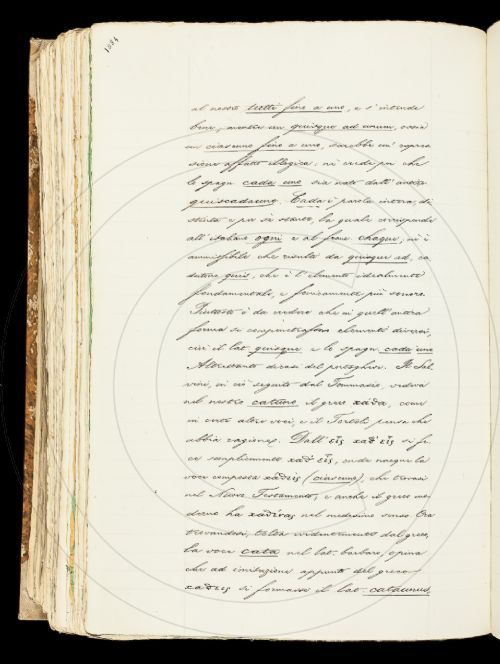 1084
al nostro tutti fino a uno, e s'intende
bene, mentre un quisque ad unum, ossia
un ciascuno fino a uno, sarebbe un'espres
sione affatto illogica; nè credo poi che
lo spagn. cada uno sia nato dall'antico
quiscadauno. Cada è parola intera, di
stinta e per sè stante, la quale corrisponde
all'italiano ogni e al franc. chaque, nè è
ammissibile che risulti da quisque ad, ca
dutone quis, che è l'elemento idealmente
fondamentale, e fonicamente più sonoro.
Piuttosto è da credere che in quell'antica
forma si compenetrassero elementi diversi,
cioè il lat. quisque, e lo spagn. cada uno
Altrettanto dicasi del portoghese. Il Sal
vini, in ciò seguito dal Tommaseo, vedeva
nel nostro catuno il greco καθα, come
in certe altre voci, e il Tortoli pensa che
abbia ragione. Dall' εἷς καθ' εἷς si fe
ce semplicemente καθ εἷς, onde nacque la
voce composta καθεις (ciascuno), che trovasi
nel Nuovo Testamento, e anche il greco mo
derno ha καθένας nel medesimo senso. Ora
trovandosi, tolta evidentemente dal greco,
la voce cata nel lat. barbaro, opina
che ad imitazione appunto del greco
καθεις si formasse il lat. cataunus,